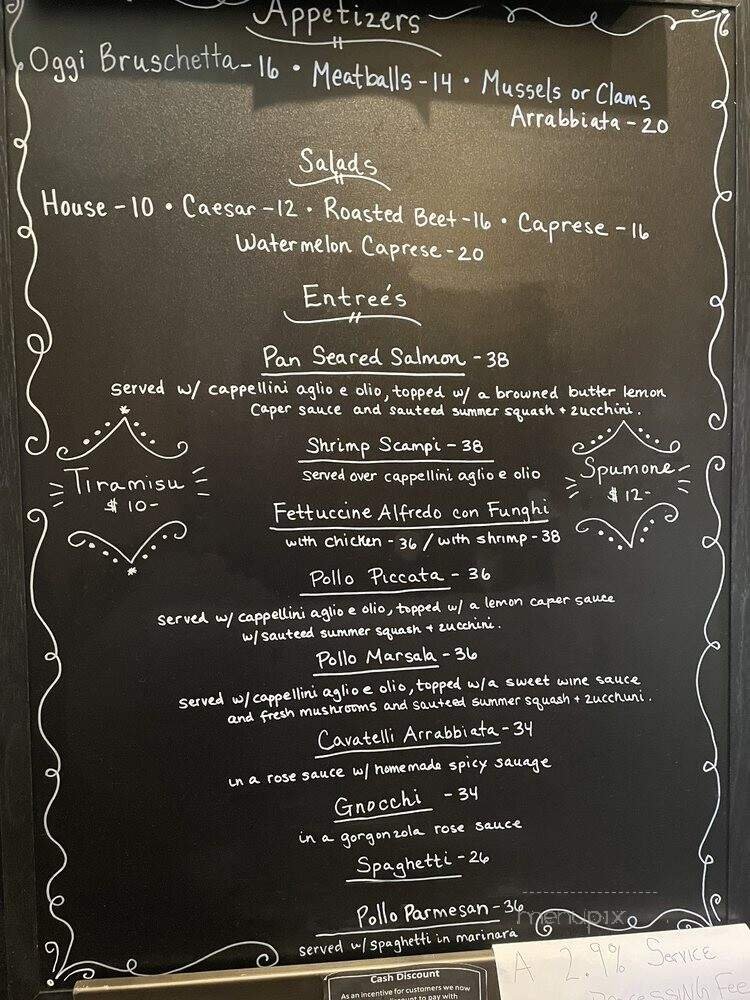 Appetizers
Oggi Bruschetta - 16 • Meatballs - 14 • Mussels or Clams
Arrabbiata - 20
Salads
House - 10 • Caesar - 12 • Roasted Beet - 16 • Caprese - 16
Watermelon Caprese - 20
Entreés
Pan Seared Salmon - 38
served w/ cappellini aglio e olio, topped w/ a browned butter lemon
caper sauce and sauteed summer squash + zucchini.
Shrimp Scampi - 38
served over cappellini aglio e olio
Tiramisu
$ 10-
Spumone
$ 12-
Fettuccine Alfredo con Funghi
with chicken - 36 / with shrimp - 38
Pollo Piccata - 36
served w/ cappellini aglio e olio, topped w/ a lemon caper sauce
w/ sauteed summer squash + zucchini.
Pollo Marsala - 36
served w/ cappellini aglio e olio, topped w/ a sweet wine sauce
and fresh mushrooms and sauteed summer squash + zucchini.
Cavatelli Arrabbiata - 34
in a rose sauce w/ homemade spicy sauage
Gnocchi - 34
in a gorgonzola rose sauce
Spaghetti - 26
Pollo Parmesan - 36
served w/ spaghetti in marinara
menupix
Cash Discount
As an incentive for customers we now
discount to pay with
A 2.9% Service
Processing Fee